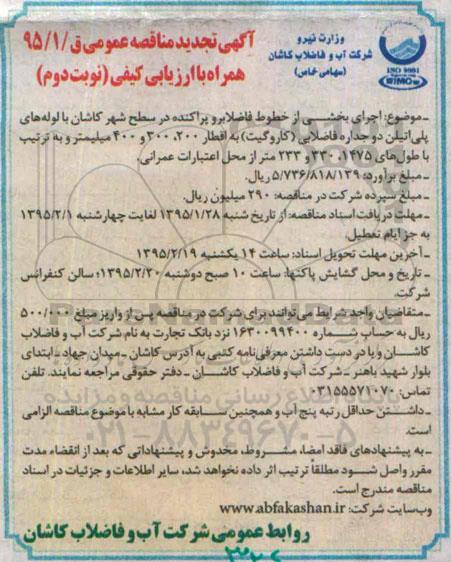 وزارت نیرو
شرکت آب و فاضلاب کاشان
(سهامی خاص)
ISO 9001
WIMO
آگهی تجدید مناقصه عمومی ق/۹۵/۱
همراه با ارزیابی کیفی (نوبت دوم)
ـ موضوع: اجرای بخشی از خطوط فاضلابرو پراکنده در سطح شهر کاشان با لوله‌های
پلی‌اتیلن دو جداره فاضلابی (کاروگیت) به اقطار ۲۰۰، ۳۰۰ و ۴۰۰ میلیمتر و به ترتیب
با طول‌های ۱۴۷۵، ۳۳۰ و ۲۳۳ متر از محل اعتبارات عمرانی.
ـ مبلغ برآورد: ۵/۷۳۶/۸۱۸/۱۳۹ ریال.
ـ مبلغ سپرده شرکت در مناقصه: ۲۹۰ میلیون ریال.
ـ مهلت دریافت اسناد مناقصه: از تاریخ شنبه ۱۳۹۵/۱/۲۸ لغایت چهارشنبه ۱۳۹۵/۲/۱
به جز ایام تعطیل.
ـ آخرین مهلت تحویل اسناد: ساعت ۱۴ یکشنبه ۱۳۹۵/۲/۱۹
ـ تاریخ و محل گشایش پاکتها: ساعت ۱۰ صبح دوشنبه ۱۳۹۵/۲/۲۰؛ سالن کنفرانس
شرکت.
ـ متقاضیان واجد شرایط می‌توانند برای شرکت در مناقصه پس از واریز مبلغ ۵۰۰/۰۰۰
ریال به حساب شماره ۱۶۳۰۰۹۹۴۰۰ نزد بانک تجارت به نام شرکت آب و فاضلاب
کاشان و با در دست داشتن معرفی‌نامه کتبی به آدرس کاشان ـ میدان جهاد ـ ابتدای
بلوار شهید باهنر ـ شرکت آب و فاضلاب کاشان ـ دفتر حقوقی مراجعه نمایند. تلفن
تماس: ۰۳۱۵۵۵۷۱۰۷۰
ـ داشتن حداقل رتبه پنج آب و همچنین سابقه کار مشابه با موضوع مناقصه الزامی
است.
ـ به پیشنهادهای فاقد امضا، مشروط، مخدوش و پیشنهاداتی که بعد از انقضاء مدت
مقرر واصل شود مطلقا ترتیب اثر داده نخواهد شد، سایر اطلاعات و جزئیات در اسناد
مناقصه مندرج است.
وب‌سایت شرکت: www.abfakashan.ir
روابط عمومی شرکت آب و فاضلاب کاشان
پایگاه اطلاع رسانی مناقصه و مزایده
۰۲۱-۸۸۳۴۹۶۷۰-۵